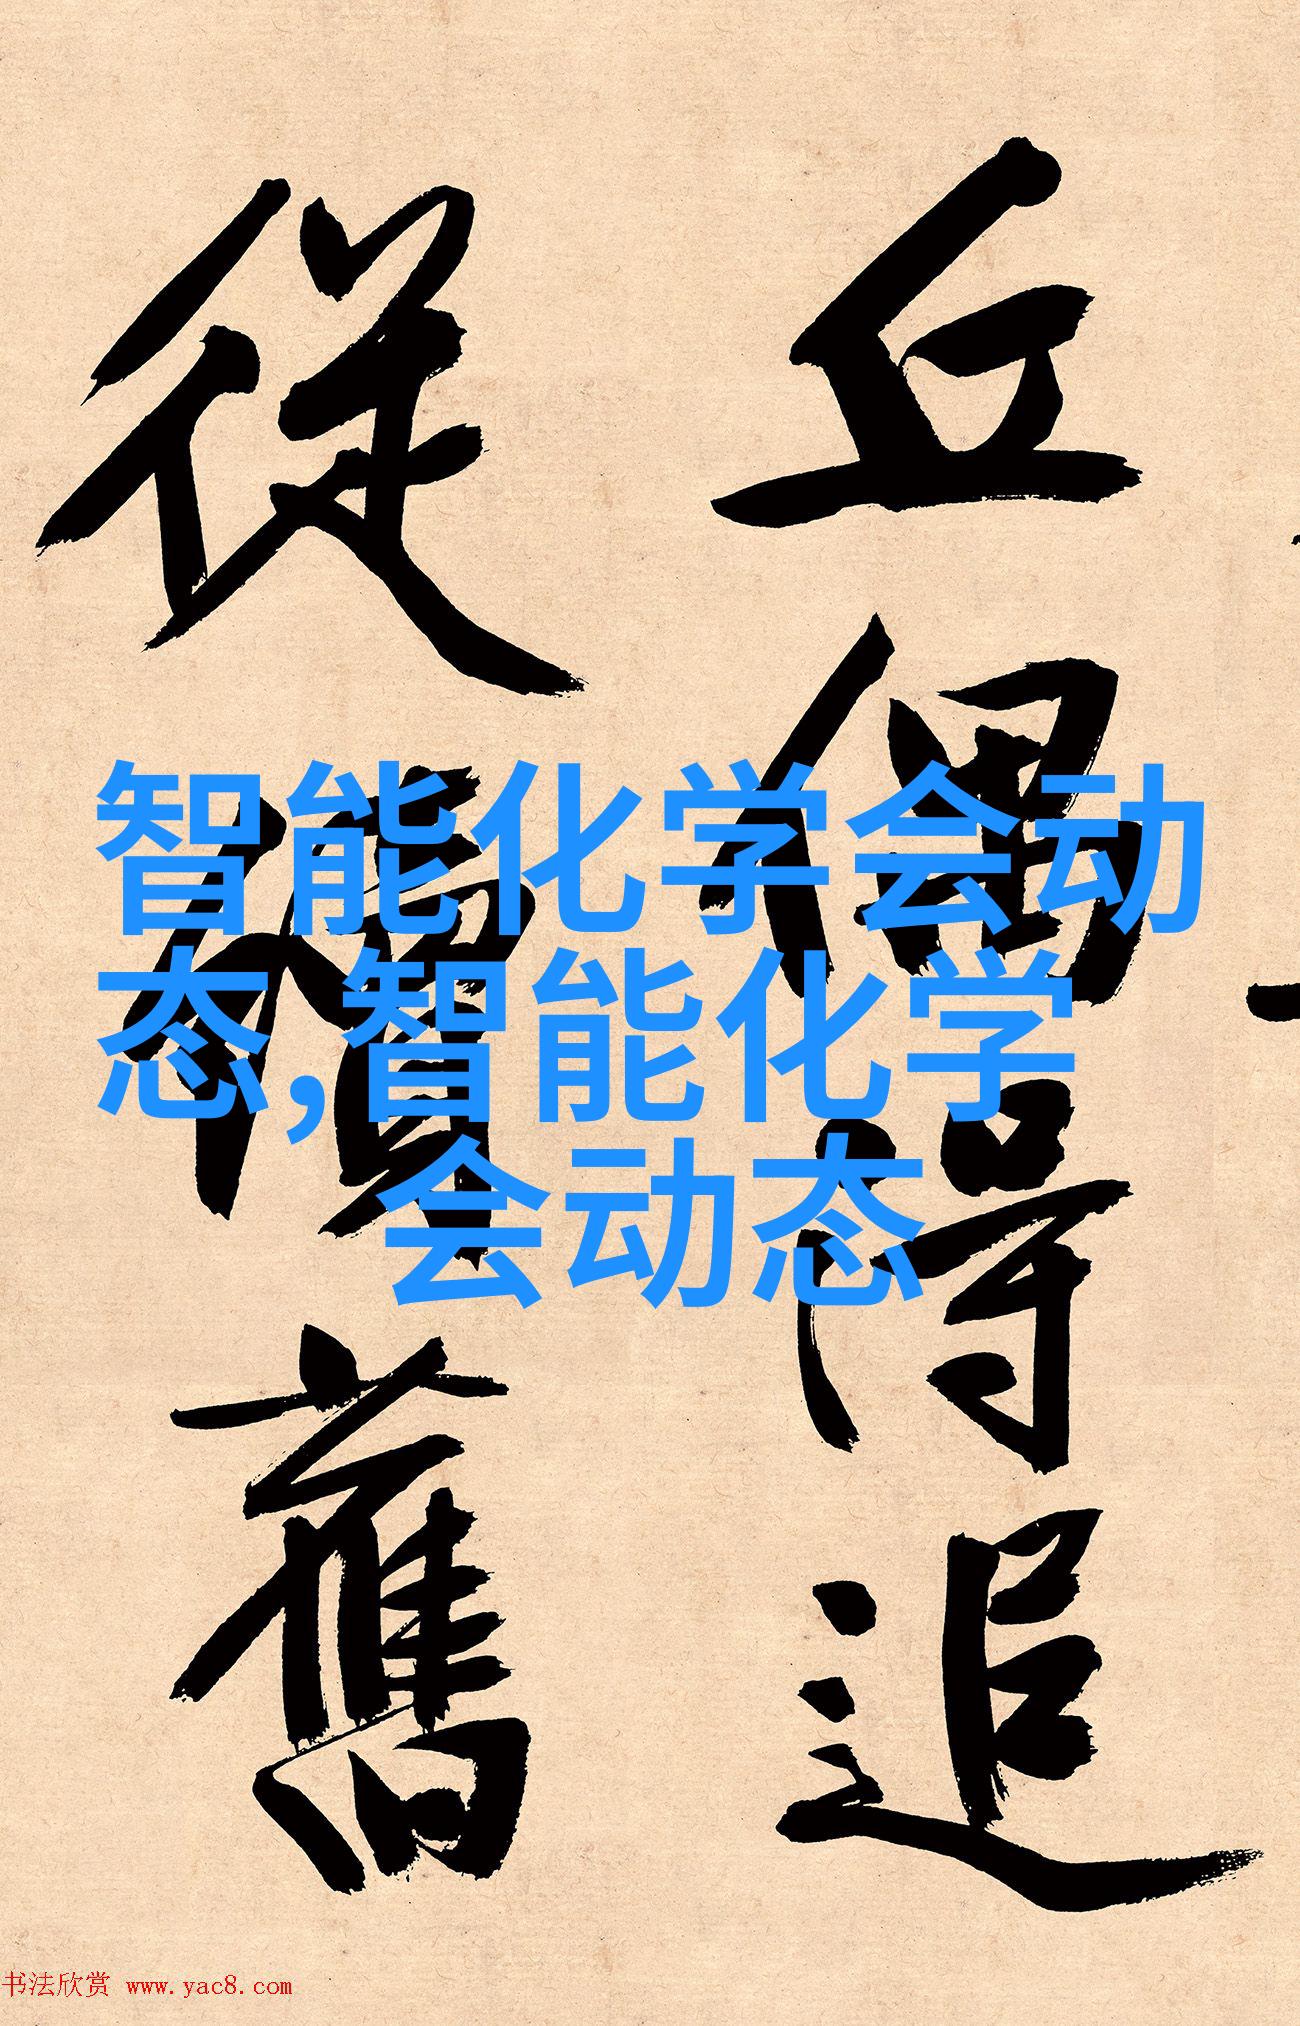 丘偶得追
從價舊
智能化学会动
态,智能化学
会动态
书法欣赏 www.yac8.com